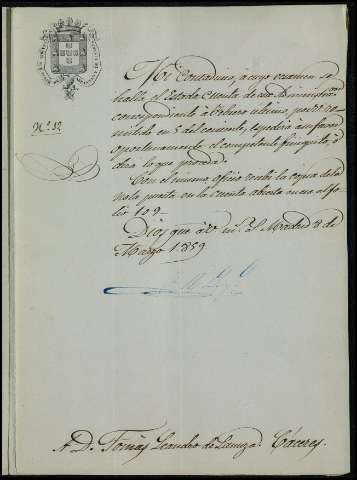 Nº 12
Mi Contaduria, á cuyo examen se
halla el Estado Cuenta de esa Administracion
correspondiente á Febrero ultimo, que V. re-
mitió en 5 del corriente, espedirá á su favor
oportunamente el competente finiquito, ó
dirá lo que proceda.
Con el mismo oficio recibí la copia de la
nota puesta en la cuenta abierta en esa al fo-
lio 109.
Dios gue á V. ms. as. Madrid 8 de
Marzo 1859
A D. Tomás Leandro de Lanuza. Cáceres.